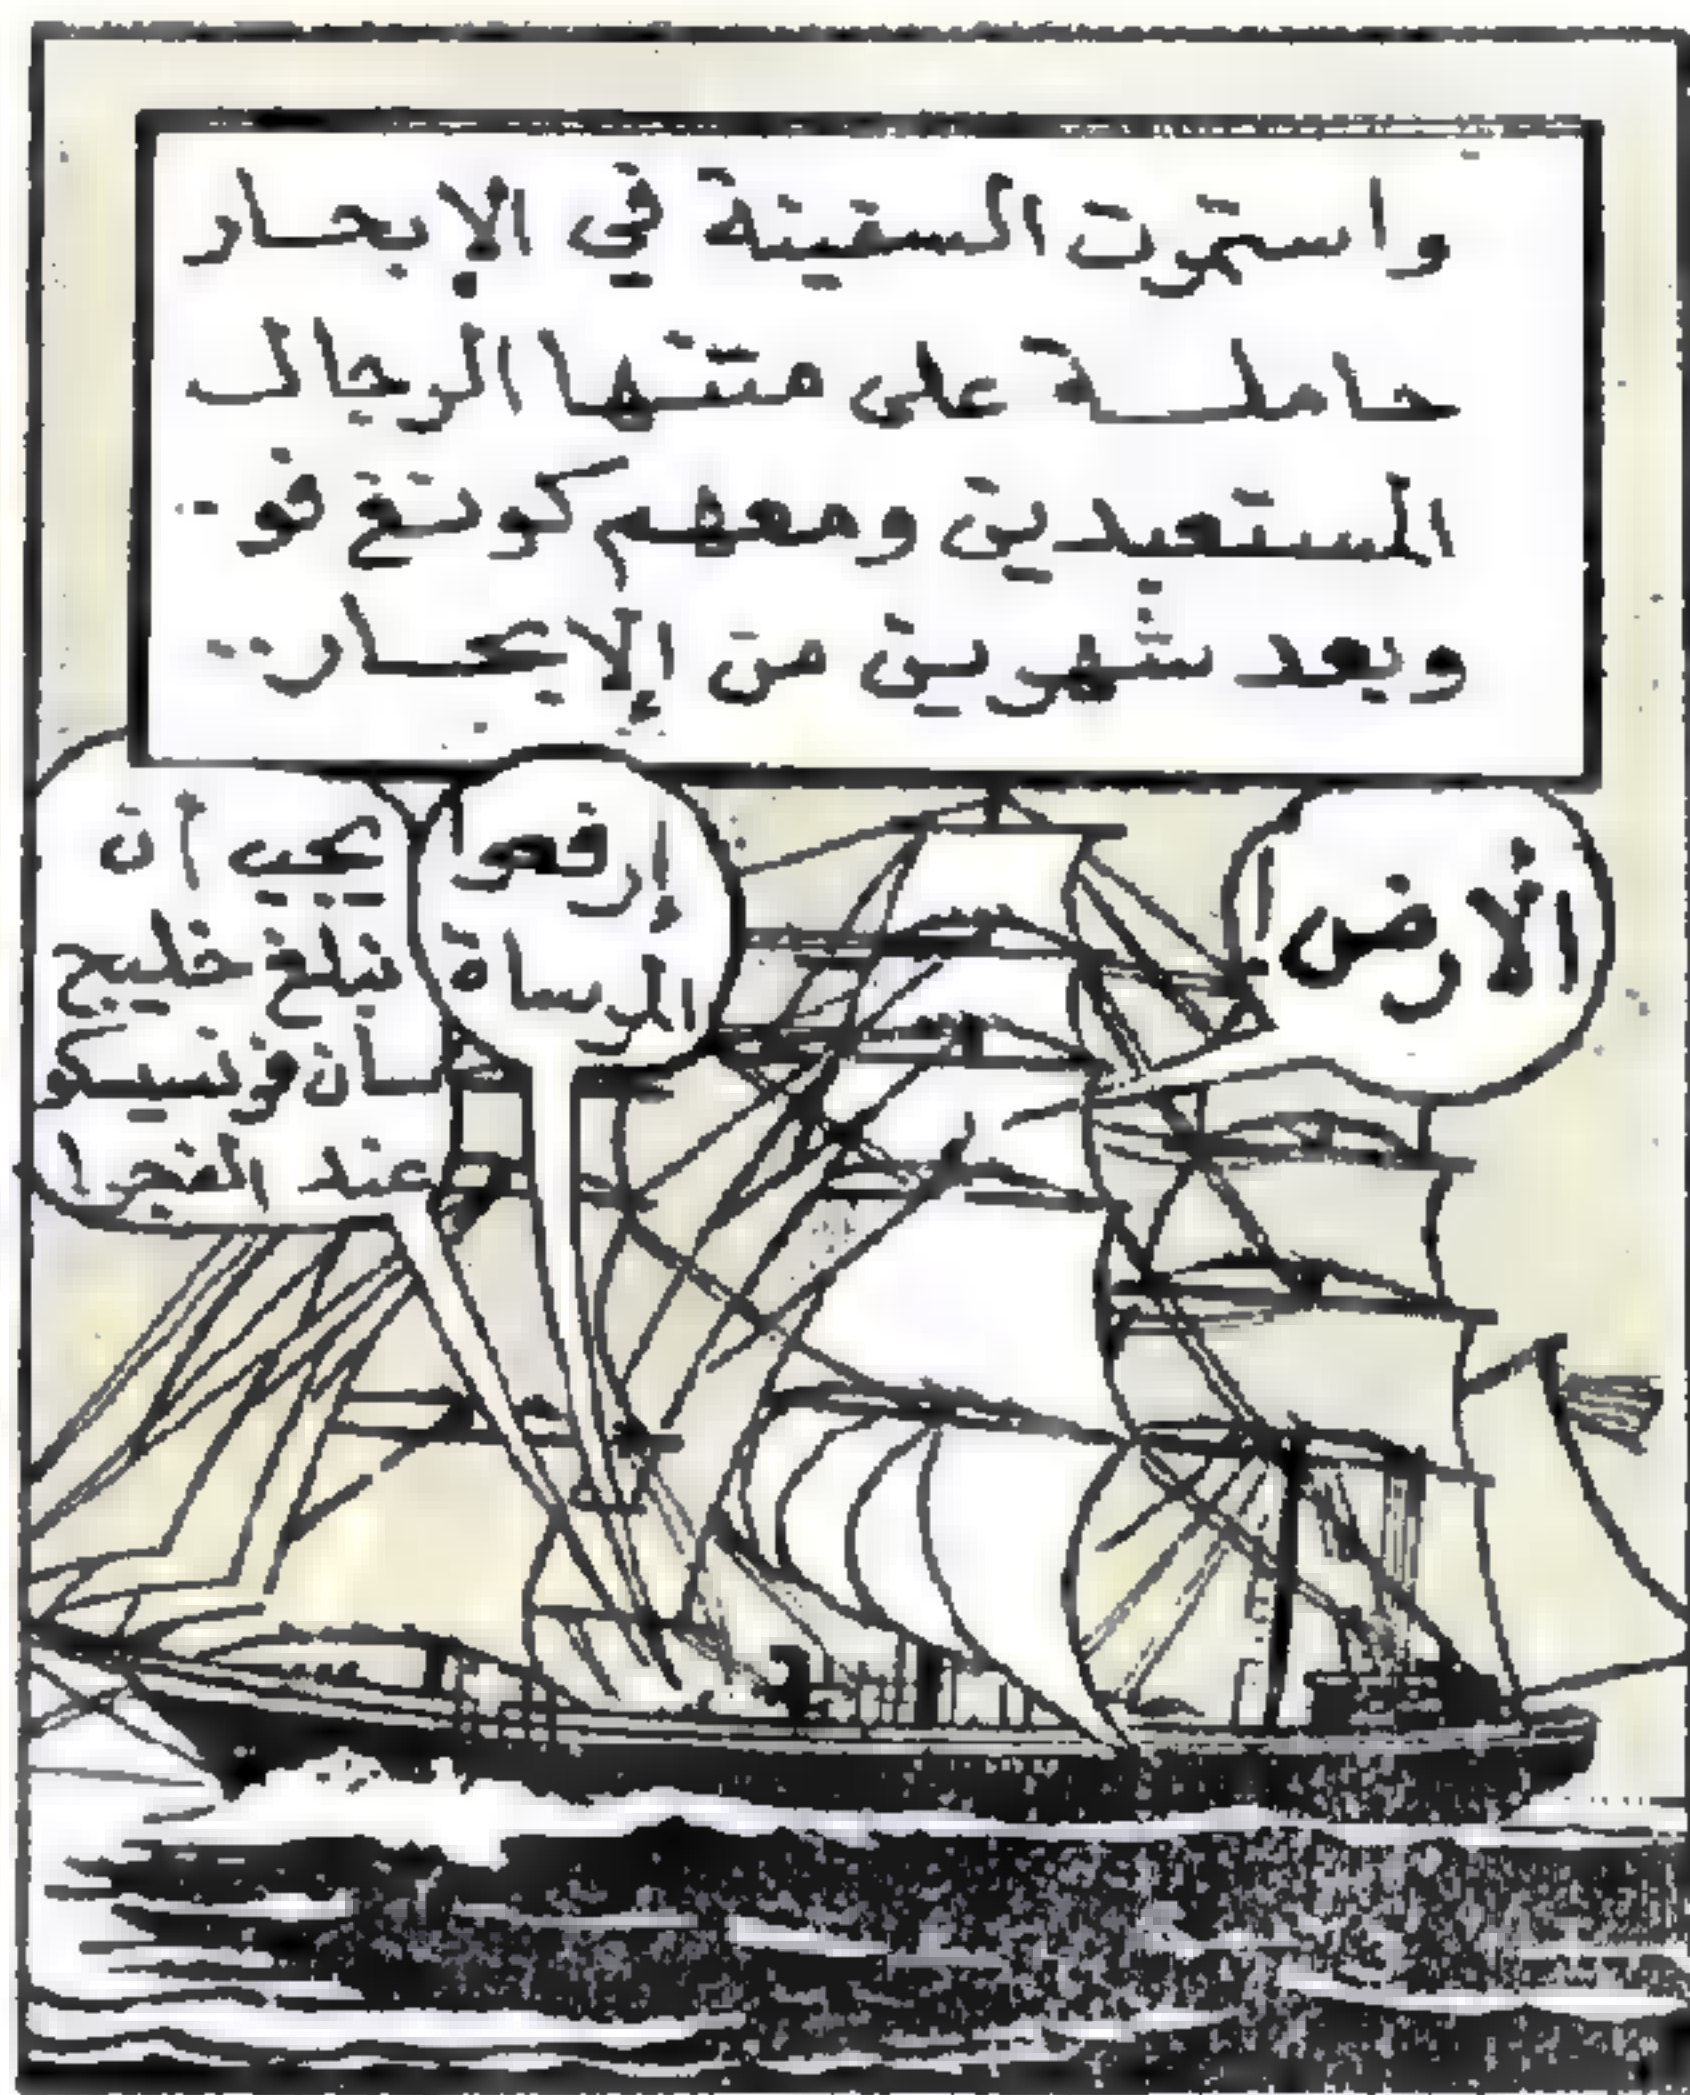 واستمرت السفينة في الإبحار
حاملة على متنها الرجال
المستعبدين ومعهم كونغ فو..
وبعد شهرين من الإبحار..
الأرض!
إرفعوا
المرساة!
يجب أن
نبلغ خليج
سان فرنسيسكو
عند الفجر!